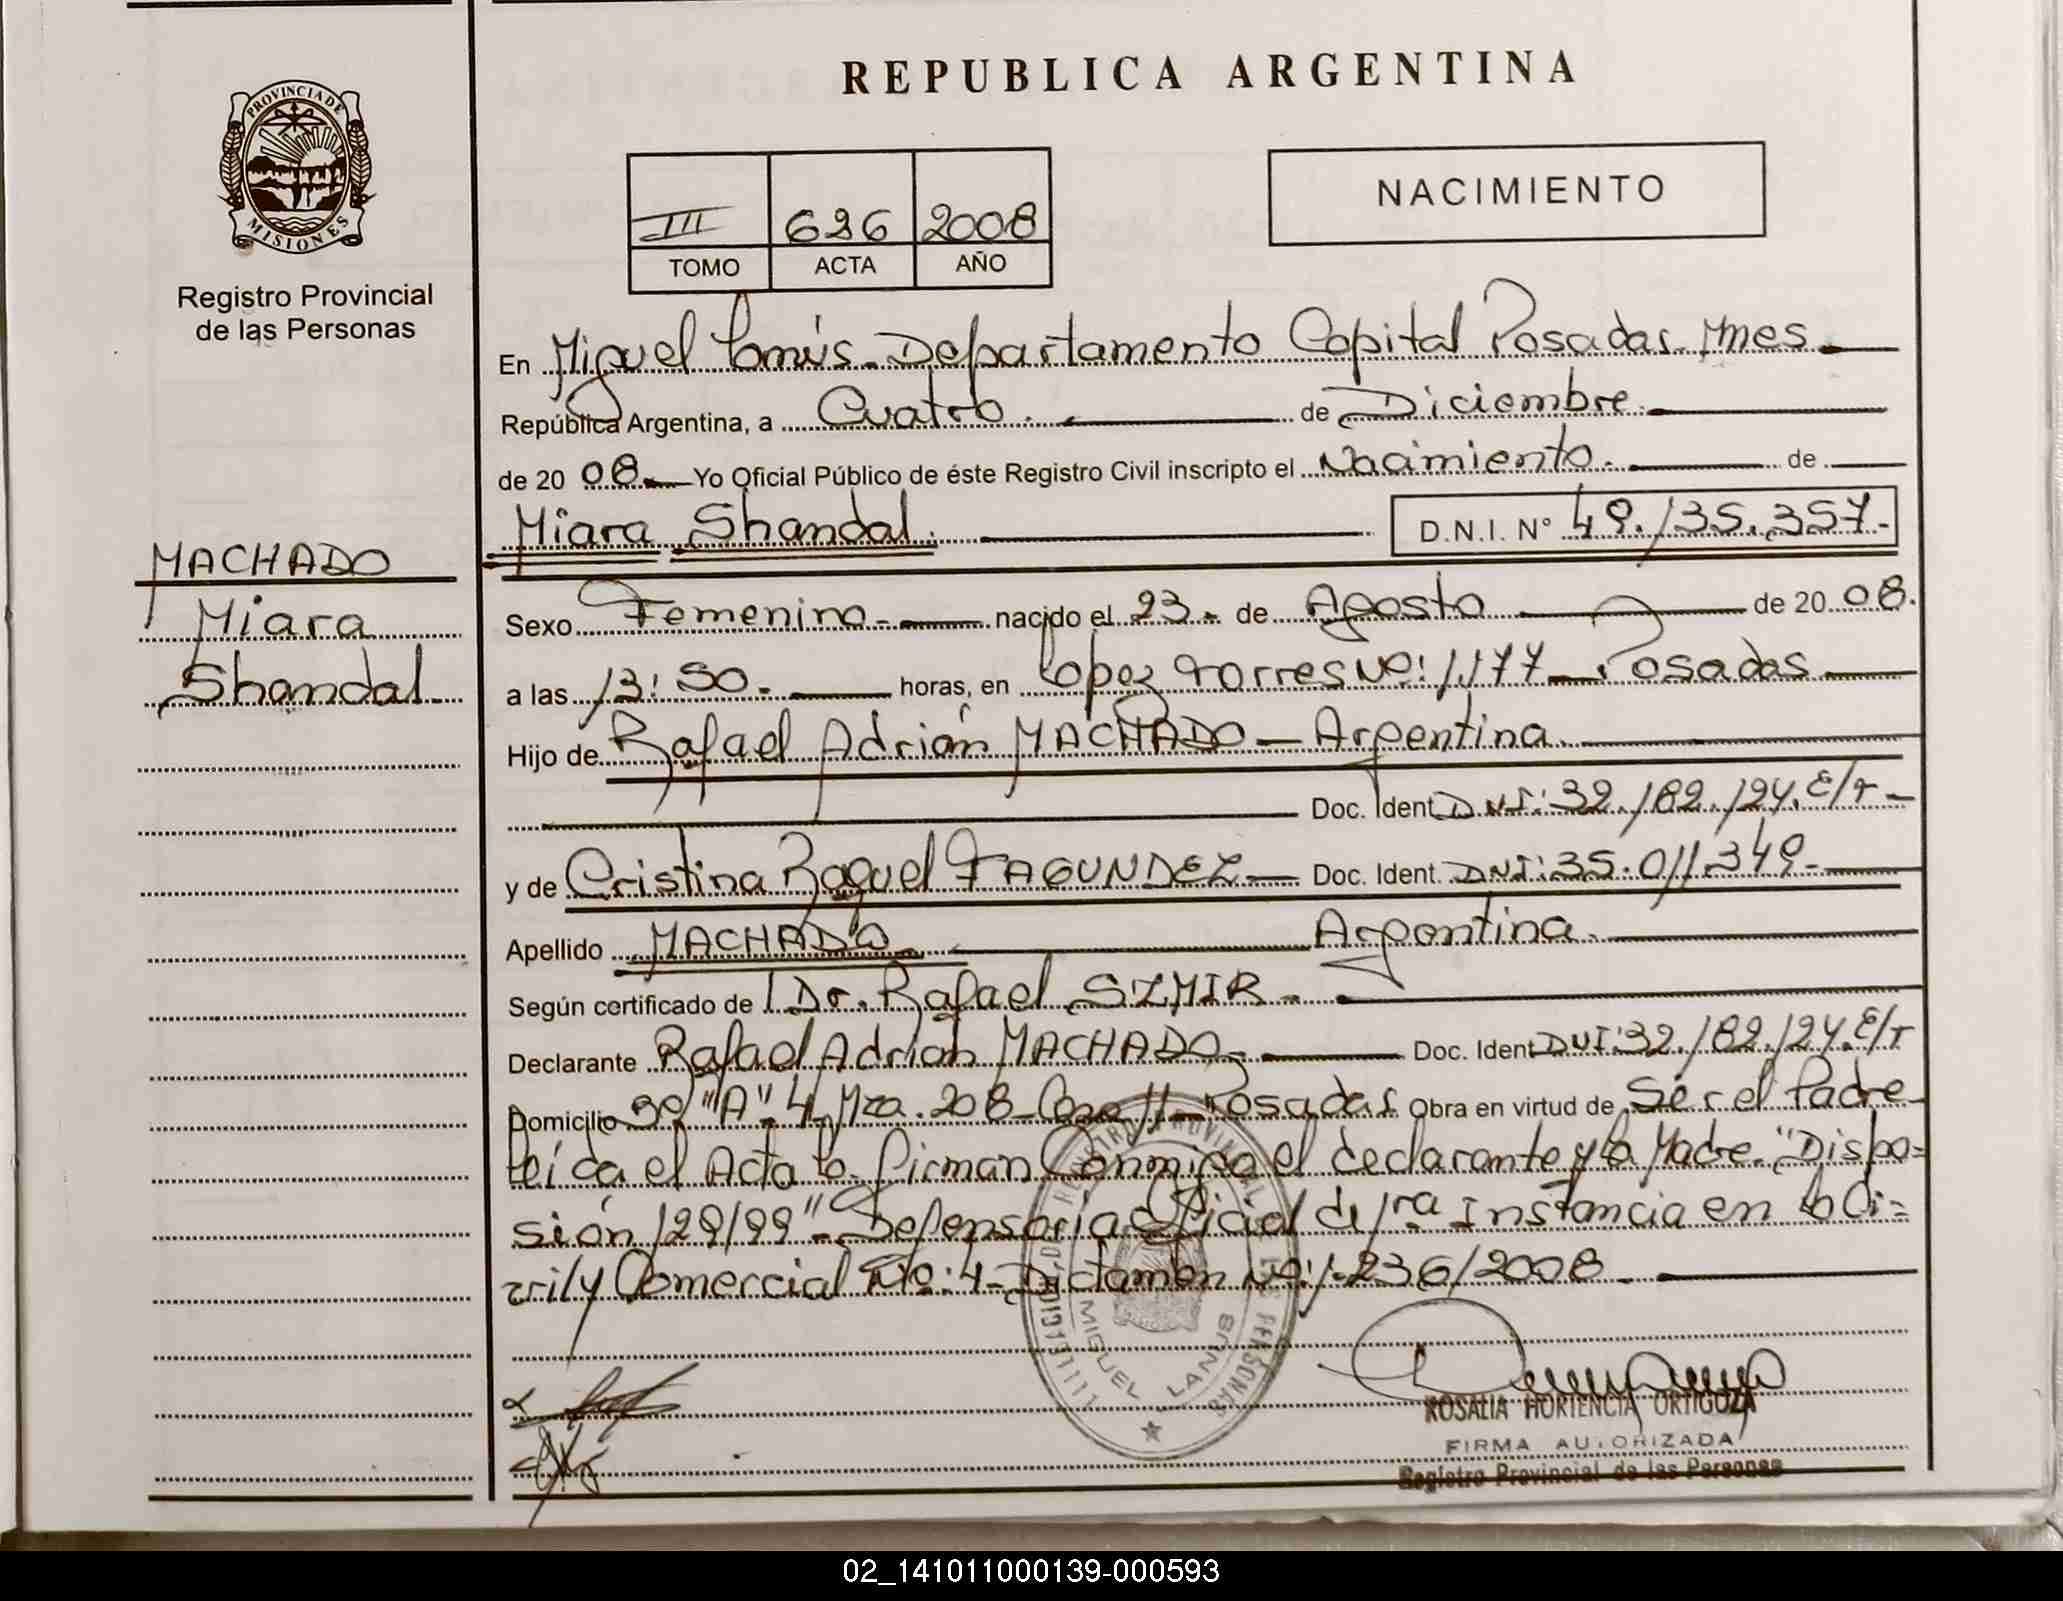 REPUBLICA ARGENTINA
PROVINCIA DE
MISIONES
Registro Provincial
de las Personas
NACIMIENTO
III 696 2008
TOMO ACTA AÑO
En Miguel Lanús. Departamento Capital Posadas. Mnes
República Argentina, a Cuatro. de Diciembre.
de 20 08. Yo Oficial Público de éste Registro Civil inscripto el Nacimiento. de
Miara Shandal. D.N.I. N° 49.135.357-
MACHADO
Miara
Shandal
Sexo Femenino- nacido el 23. de Agosto de 20 08.
a las 13:50. horas, en Lopez Torres Nº: 1.177 - Posadas
Hijo de Rafael Adrián MACHADO - Argentina
Doc. Ident. DNI: 32.182.124. E/T -
y de Cristina Raquel FAGUNDEZ - Doc. Ident. DNI: 35.011.349.
Apellido MACHADO Argentina.
Según certificado de Dr. Rafael SZMIR.
Declarante Rafael Adrián MACHADO Doc. Ident DNI: 32.182.124. E/T
Domicilio "A" 4 Mza. 208 - Casa 11 - Posadas. Obra en virtud de Ser el Padre
Leída el Acta la firman Conmigo el declarante y la Madre. "Dispo=
sión 129/99" - Defensoría Oficial de 1ra Instancia en lo Ci=
vil y Comercial Nº: 4 - Dictamen Nº: 1.236/2008
REGISTRO PROVINCIAL DE LAS PERSONAS
MIGUEL LANUS
ROSALIA HORTENCIA ORTIGOZA
FIRMA AUTORIZADA
Registro Provincial de las Personas
02_141011000139-000593